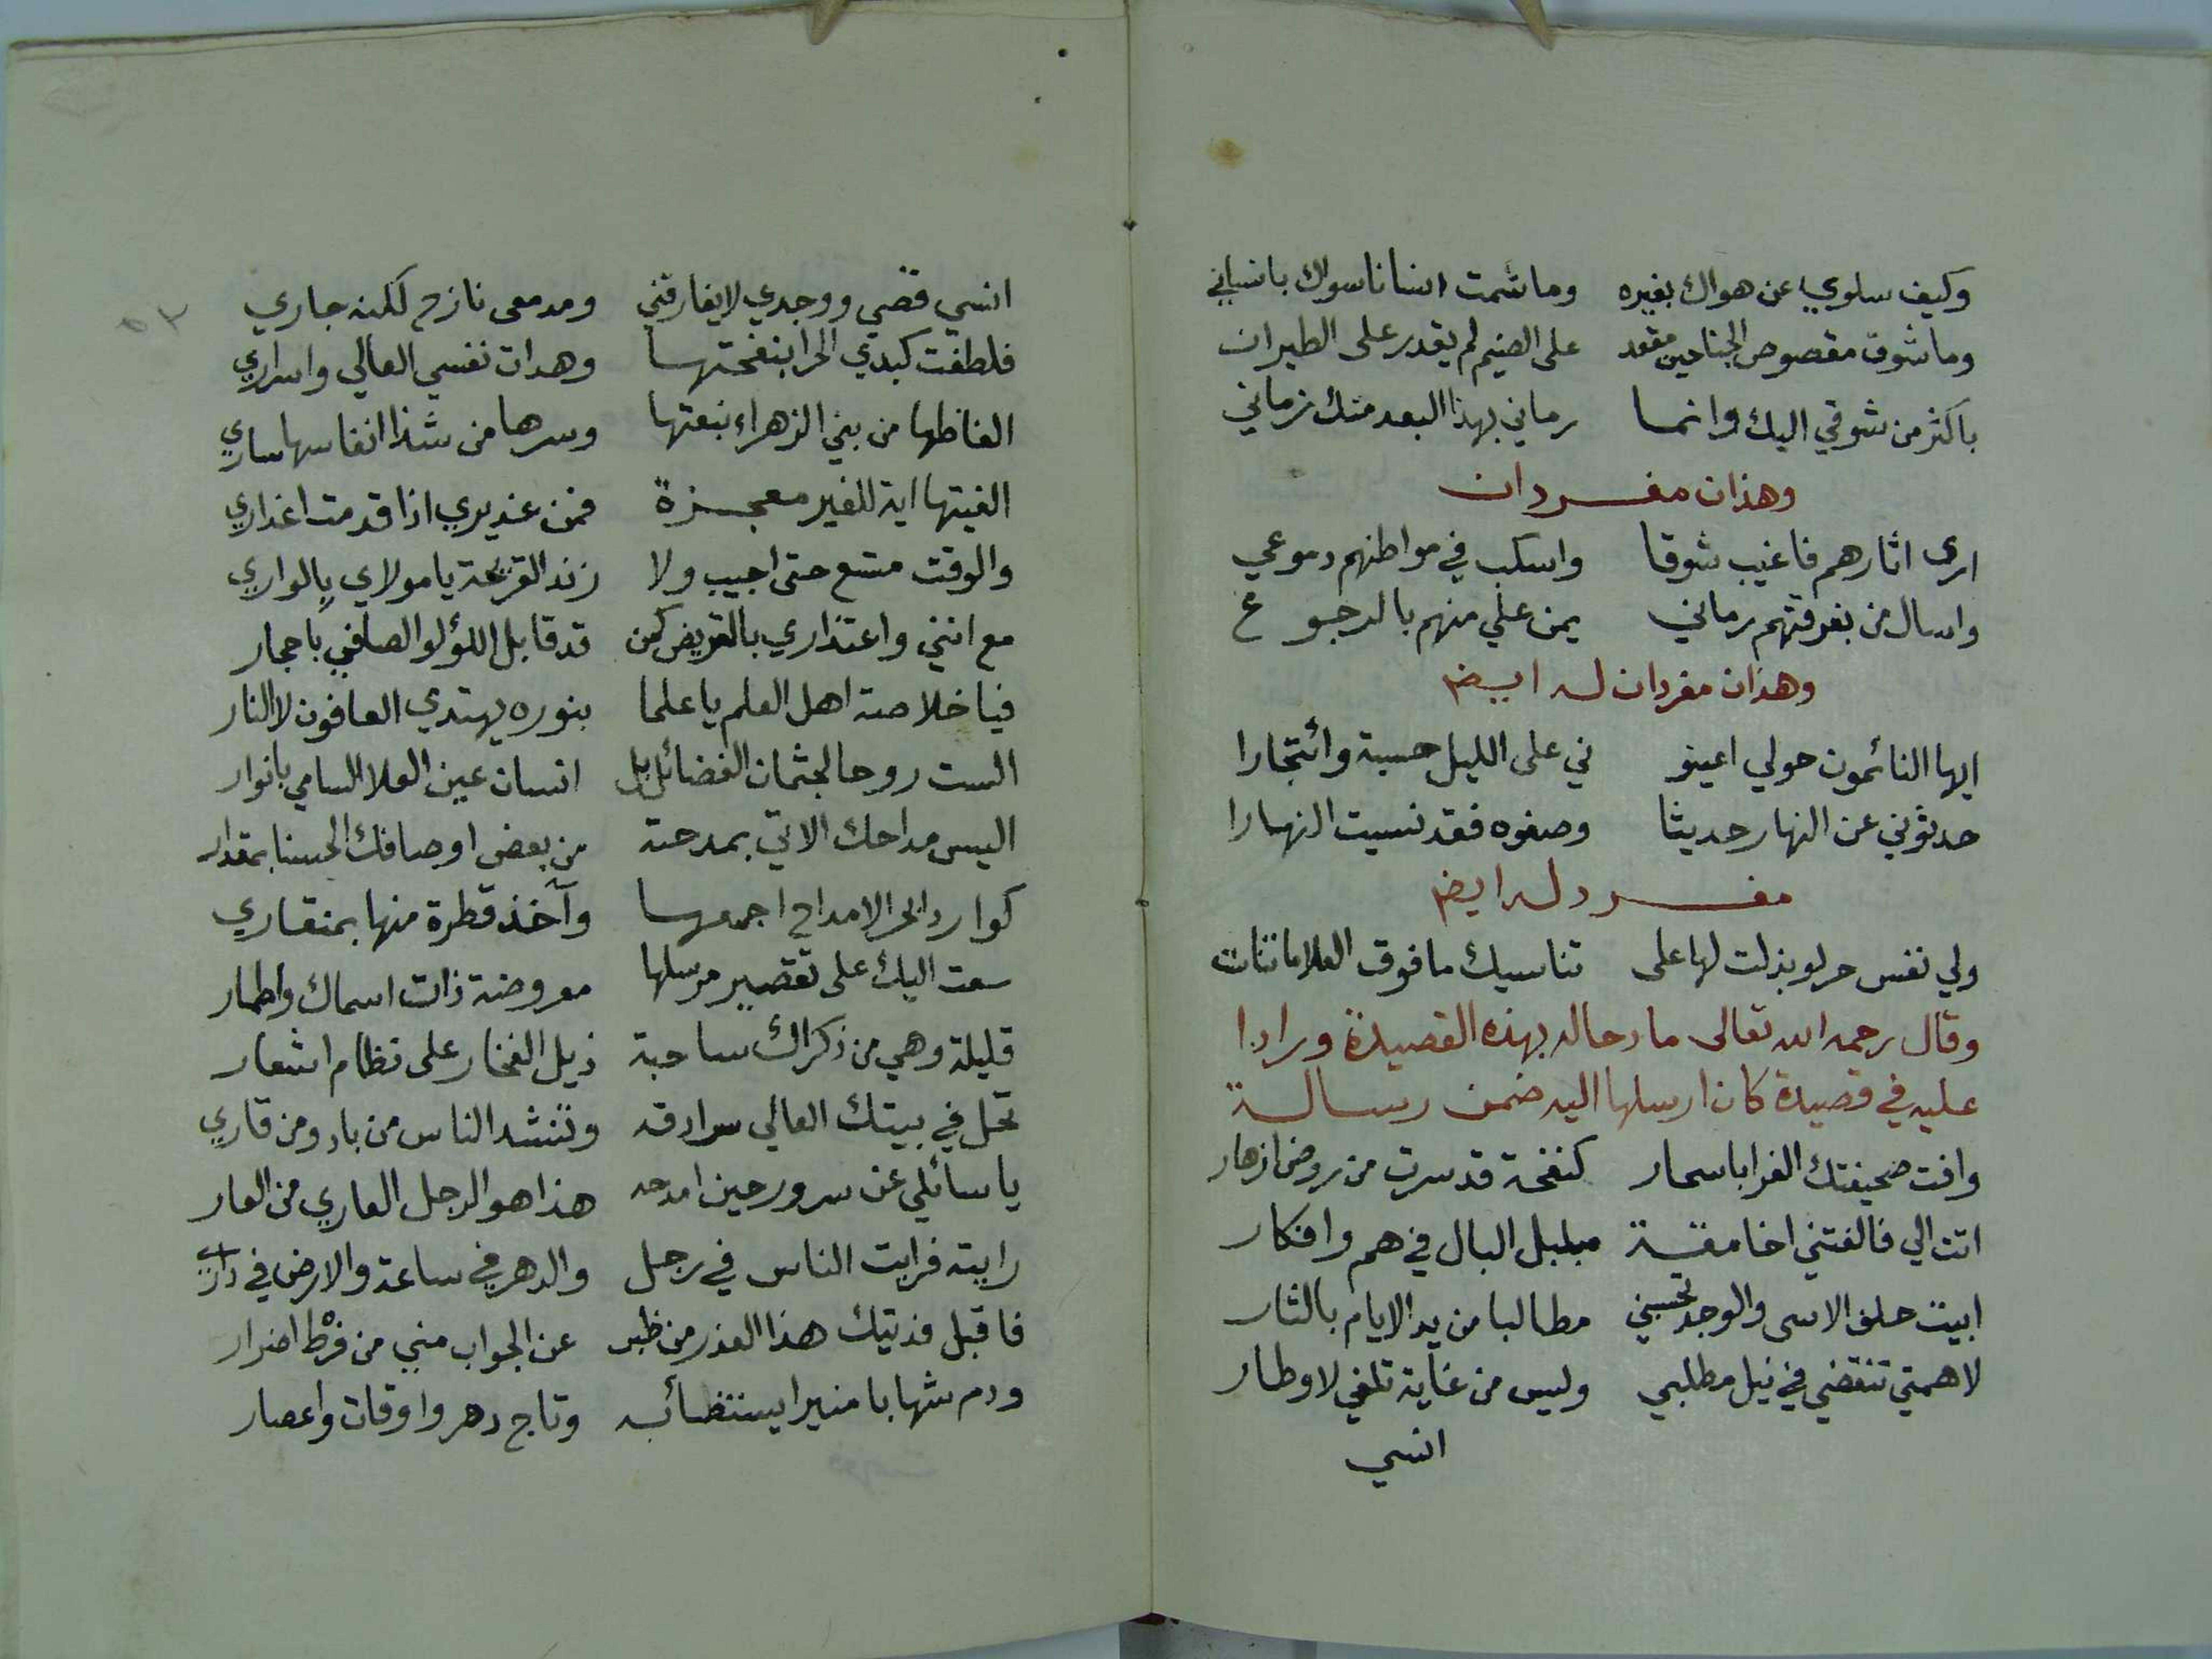 وكيف سلوي عن هواك بغيره وما شمت انسانا سواك بانساني
وما شوق مقصوص الجناحين مقعد على الضيم لم يقدر على الطيران
باكثر من شوقي اليك وانما رماني بهذا البعد منك زماني
وهذان مفردان
ارى اثارهم فاغيب شوقا واسكب في مواطنهم دموعي
واسال من بفرقتهم رماني يمن علي منهم بالرجوع
وهذان مفردان له ايضا
ايها النائمون حولي اعينو ني على الليل حسبة وائتجارا
حدثوني عن النهار حديثا وصفوه فقد نسيت النهارا
مفرد له ايضا
ولي نفس حر لو بذلت لها على تناسيك ما فوق العلا ما تناست
وقال رحمه الله تعالى مادحا له بهذه القصيدة ورادا
عليه في قصيدة كان ارسلها اليه ضمن رسالة
وافت صحيفتك الغرا باسحار كنفحة قد سرت من روض ازهار
اتت الي فالفتني اخا مقة مبلبل البال في هم وافكار
ابيت حلف الاسى والوجد تحسبني مطالبا من يد الايام بالثار
لا همتي تنقضي في نيل مطلبي وليس من غاية تلفي لاوطار
انسي
٥٣
انسي قصي ووجدي لا يفارقني ومدمعى نازح لكنه جاري
فلطفت كبدي الحرا بنفحتها وهدات نفسي العالي واسراري
الفاظها من بني الزهراء نبعتها وسرها من شذا انفاسها ساري
الفيتها اية للغير معجزة فمن عذيري اذا قدمت اعذاري
والوقت متسع حتى اجيب ولا زند القريحة يا مولاي بالواري
مع انني واعتذاري بالقريض كمن قد قابل اللؤلو الصافي باحجار
فيا خلاصة اهل العلم يا علما بنوره يهتدي العافون لا النار
الست روحا لجثمان الفضائل بل انسان عين العلا السامي بانوار
اليس مداحك الاتي بمدحته من بعض اوصافك الحسنا بمقدار
كوارد البحر الامداح اجمعها وآخذ قطرة منها بمنقاري
سعت اليك على تقصير مرسلها معروضة ذات اسماك واطمار
قليلة وهي من ذكراك ساحبة ذيل الفخار على نظام اشعار
تحل في بيتك العالي سرادقه وتنشد الناس من باد ومن قاري
يا سائلي عن سرور حين امدحه هذا هو الرجل العاري من العار
رايته فرايت الناس في رجل والدهر في ساعة والارض في دار
فاقبل فديتك هذا العذر من عن الجواب مني من فرط اضرار
ودم شهابا منيرا يستضأ به وتاج دهر واوقات واعصار